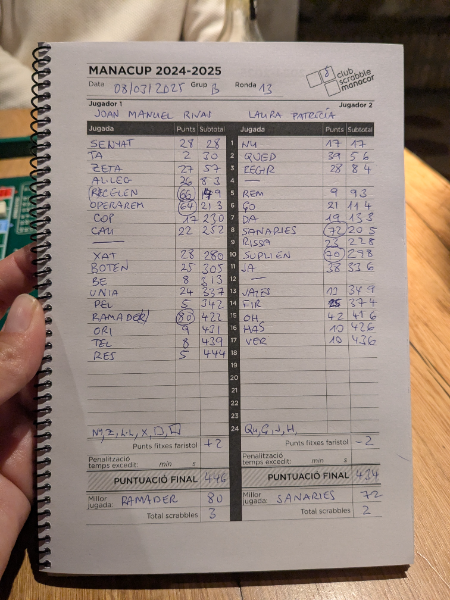 MANACUP 2024-2025
club scrabble manacor
Data 08/03/2025 Grup B Ronda 13
Jugador 1 Jugador 2
JOAN MANUEL RIVAS LAURA PATRÍCIA
Jugada Punts Subtotal Jugada Punts Subtotal
SENYAT 28 28 1 NU 17 17
TA 2 30 2 QUED 39 56
ZETA 27 57 3 REGIR 28 84
AL·LEG 26 83 4 —
RECELEN 66 149 5 REM 9 93
OPERAREM 64 213 6 ÇO 21 114
COP 17 230 7 DA 19 133
CAU 22 252 8 SANARIES 72 205
— 9 RISSA 23 228
XAT 28 280 10 SUPLIEN 70 298
BOTEN 25 305 11 JA 38 336
BE 8 313 12 —
UNIA 24 337 13 13 349
PEL 5 342 14 FIR 25 374
RAMADER 80 422 15 OH 42 416
ORI 9 431 16 HAS 10 426
TEL 8 439 17 VER 10 436
RES 5 444 18
19
20
21
22
23
24
NY, Z, L·L, X, Qu, Ç, J, H,
Punts fitxes faristol +2 Punts fitxes faristol -2
Penalització temps excedit: min s Penalització temps excedit: min s
PUNTUACIÓ FINAL 446 PUNTUACIÓ FINAL 434
Millor jugada: RAMADER 80 Millor jugada: SANARIES 72
Total scrabbles 3 Total scrabbles 2